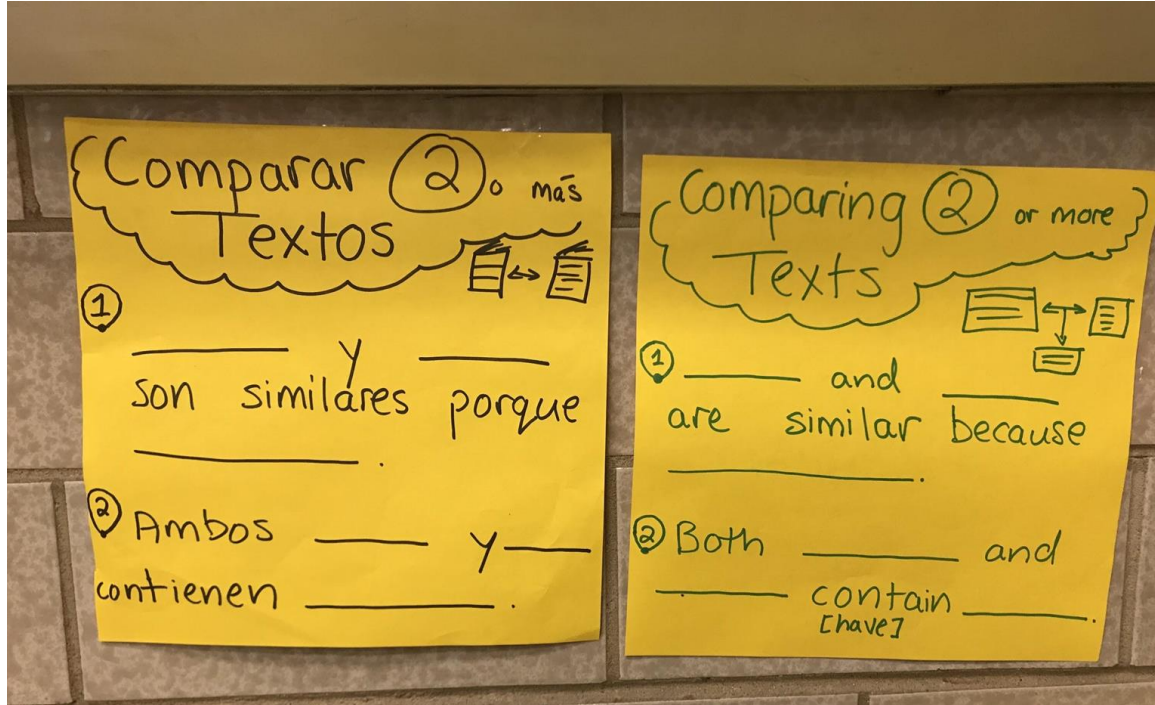 Comparar 2 o más
Textos
1
______ y ______
son similáres porque
______.
2 Ambos ______ y ______
contienen ______.
Comparing 2 or more
Texts
1 ______ and ______
are similar because
______.
2 Both ______ and
______ contain ______.
[have]